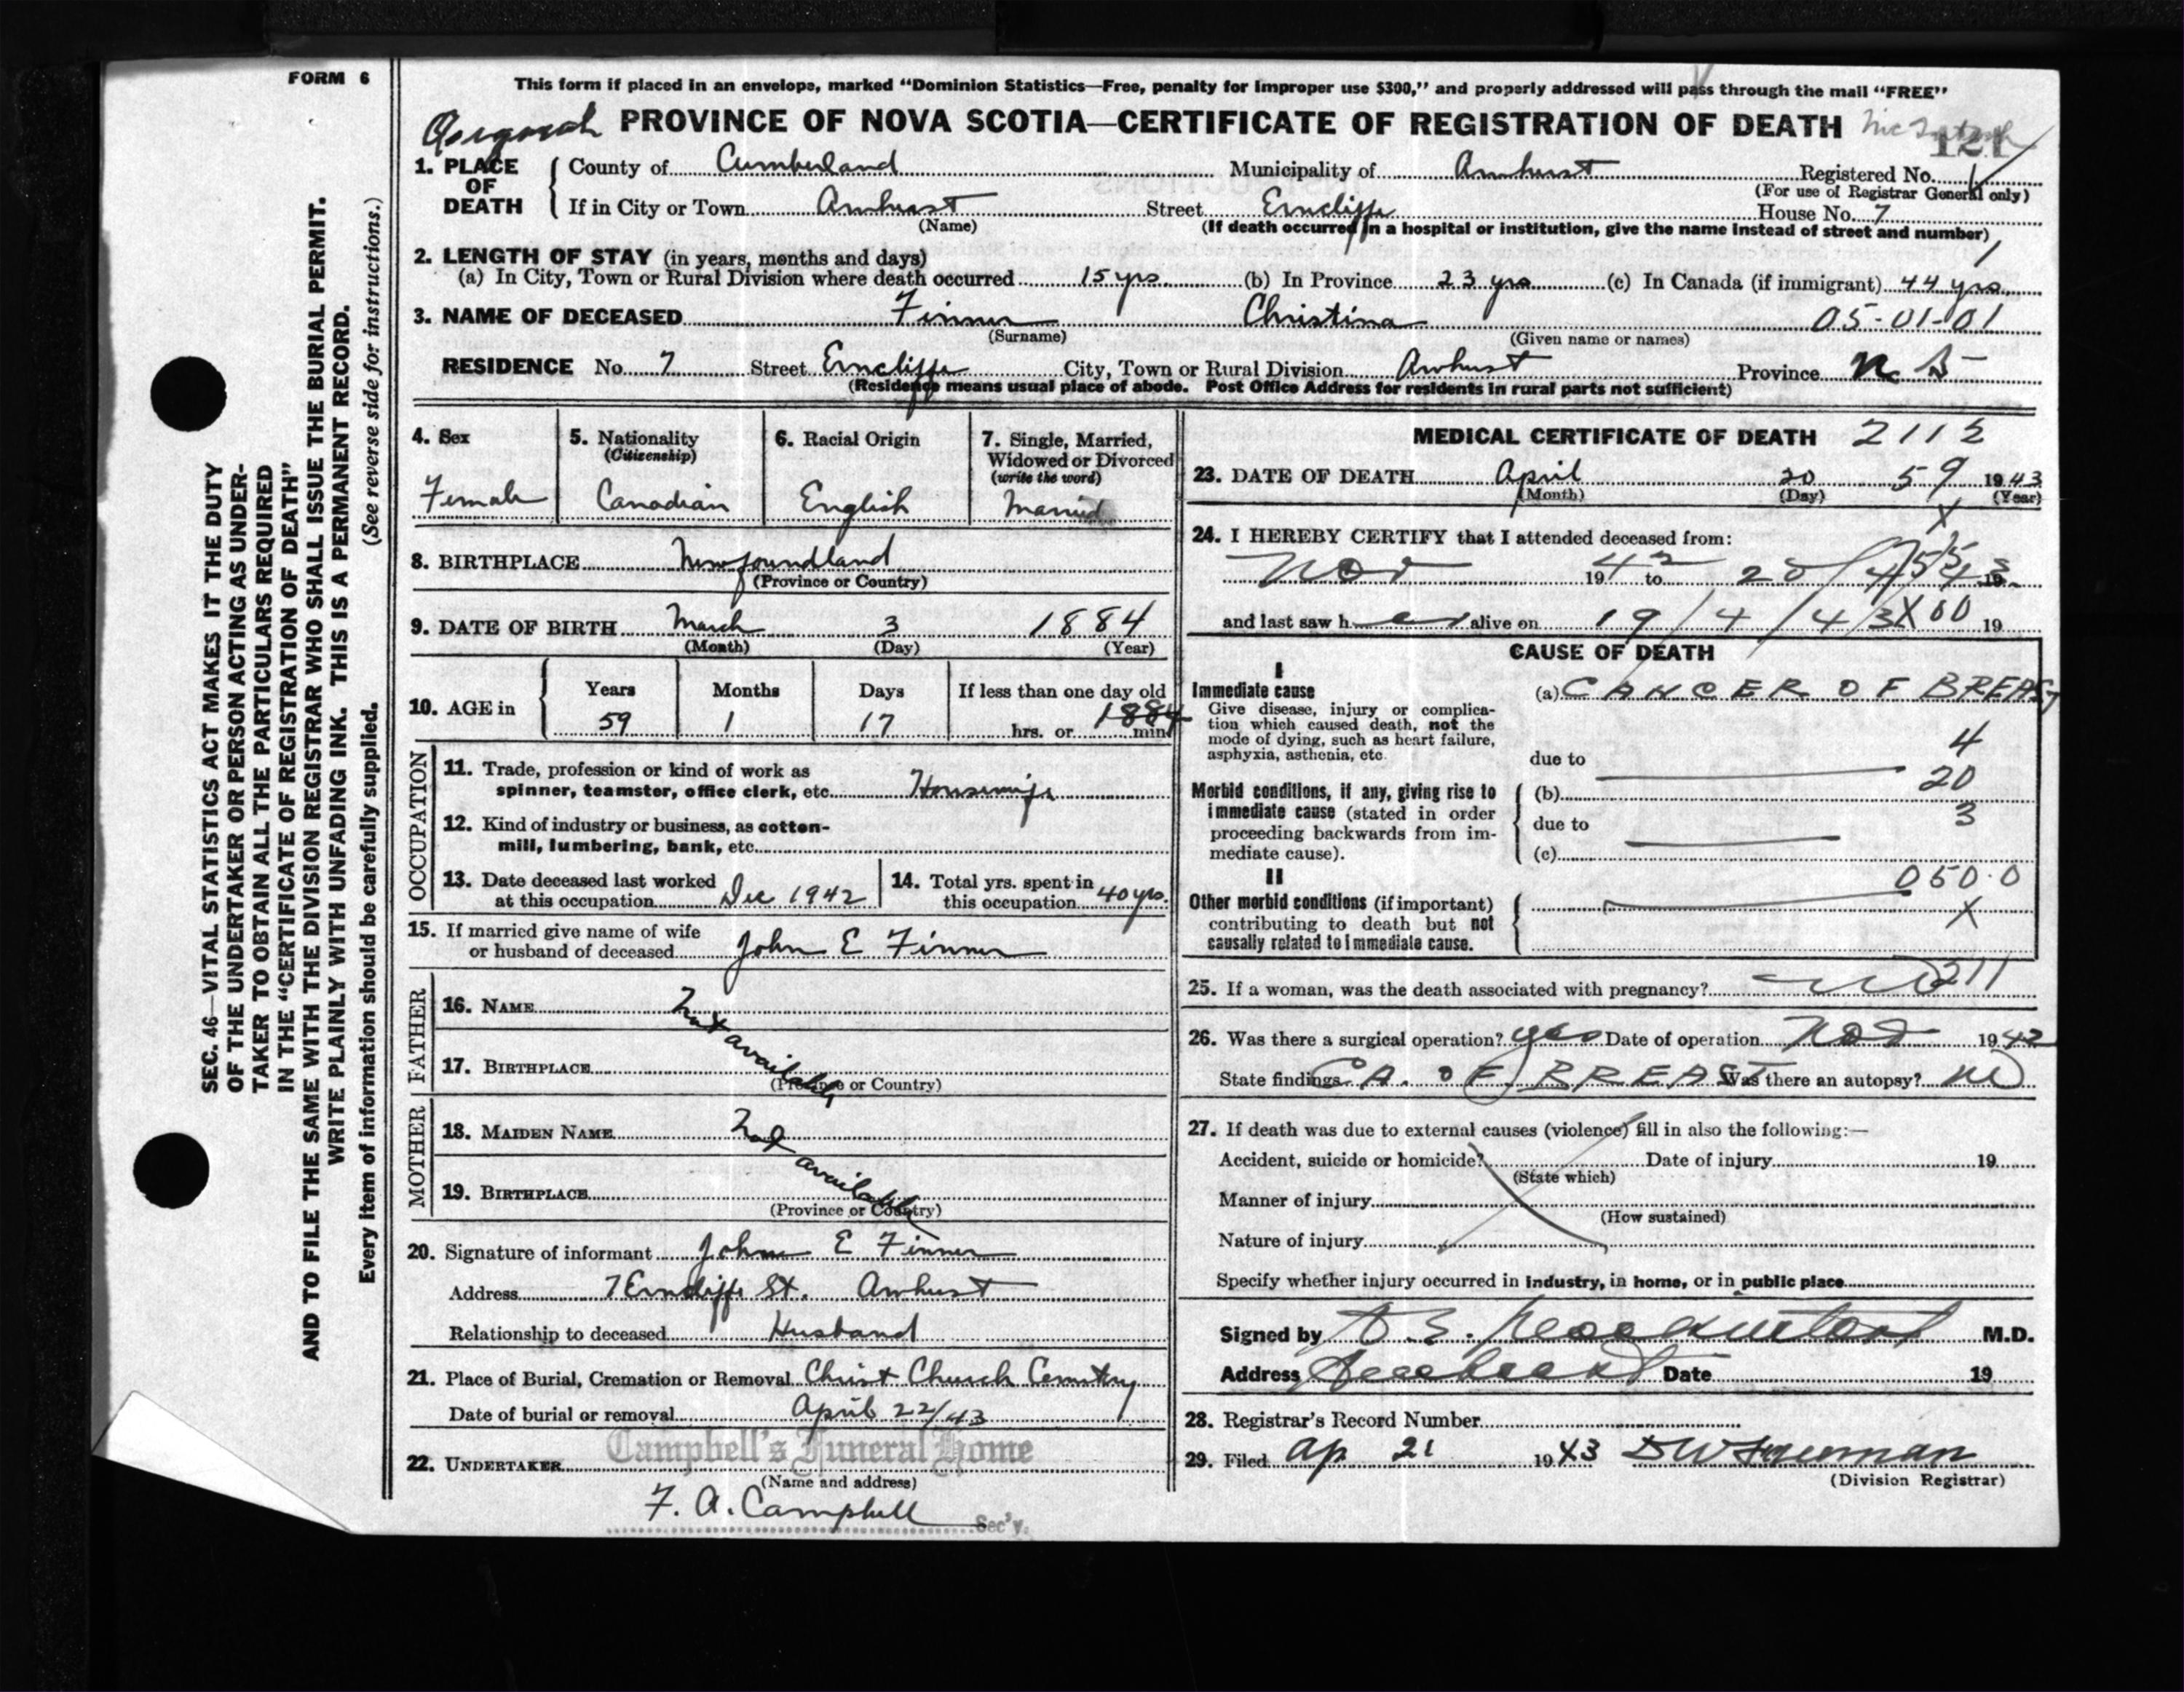 FORM 6
This form if placed in an envelope, marked "Dominion Statistics—Free, penalty for Improper use $300," and properly addressed will pass through the mail "FREE"
PROVINCE OF NOVA SCOTIA—CERTIFICATE OF REGISTRATION OF DEATH
121
1. PLACE OF DEATH
County of Cumberland Municipality of Amherst Registered No.
(For use of Registrar General only)
If in City or Town Amherst Street Erncliffe House No. 7
(Name) (If death occurred in a hospital or institution, give the name instead of street and number)
2. LENGTH OF STAY (in years, months and days)
(a) In City, Town or Rural Division where death occurred 15 yrs. (b) In Province 23 yrs (c) In Canada (if immigrant) 44 yrs.
3. NAME OF DECEASED Finner Christina 05-01-01
(Surname) (Given name or names)
RESIDENCE No. 7 Street Erncliffe City, Town or Rural Division Amherst Province N S
(Residence means usual place of abode. Post Office Address for residents in rural parts not sufficient)
4. Sex
Female
5. Nationality
(Citizenship)
Canadian
6. Racial Origin
English
7. Single, Married, Widowed or Divorced
(write the word)
Married
8. BIRTHPLACE Newfoundland
(Province or Country)
9. DATE OF BIRTH March 3 1884
(Month) (Day) (Year)
10. AGE in
Years Months Days If less than one day old
59 1 17 hrs. or 1884 min.
OCCUPATION
11. Trade, profession or kind of work as
spinner, teamster, office clerk, etc. Housewife
12. Kind of industry or business, as cotton-
mill, lumbering, bank, etc.
13. Date deceased last worked
at this occupation Dec 1942
14. Total yrs. spent in
this occupation 40 yrs.
15. If married give name of wife
or husband of deceased John E Finner
FATHER
16. NAME Not available
17. BIRTHPLACE
(Province or Country)
MOTHER
18. MAIDEN NAME Not available
19. BIRTHPLACE
(Province or Country)
20. Signature of informant John E Finner
Address 7 Erncliffe St. Amherst
Relationship to deceased Husband
21. Place of Burial, Cremation or Removal Christ Church Cemetery
Date of burial or removal April 22/43
22. UNDERTAKER Campbell's Funeral Home
(Name and address)
F. A. Campbell Sec'y.
MEDICAL CERTIFICATE OF DEATH 2112
23. DATE OF DEATH April 20 59 1943
(Month) (Day) (Year)
X
24. I HEREBY CERTIFY that I attended deceased from:
Nov 1942 to 20/4/43 19
and last saw her alive on 19/4/43 X00 19
CAUSE OF DEATH
I
Immediate cause
Give disease, injury or complica-
tion which caused death, not the
mode of dying, such as heart failure,
asphyxia, asthenia, etc.
(a) CANCER OF BREAST
4
due to
20
Morbid conditions, if any, giving rise to
immediate cause (stated in order
proceeding backwards from im-
mediate cause).
(b)
3
due to
(c)
II
050.0
Other morbid conditions (if important)
contributing to death but not
causally related to immediate cause.
X
25. If a woman, was the death associated with pregnancy? no 211
26. Was there a surgical operation? yes Date of operation Nov 1942
State findings CA. OF BREAST Was there an autopsy? no
27. If death was due to external causes (violence) fill in also the following:—
Accident, suicide or homicide? Date of injury 19
(State which)
Manner of injury
(How sustained)
Nature of injury
Specify whether injury occurred in industry, in home, or in public place
Signed by M.D.
Address Date 19
28. Registrar's Record Number
29. Filed Ap 21 1943
(Division Registrar)
SEC. 46—VITAL STATISTICS ACT MAKES IT THE DUTY
OF THE UNDERTAKER OR PERSON ACTING AS UNDER-
TAKER TO OBTAIN ALL THE PARTICULARS REQUIRED
IN THE "CERTIFICATE OF REGISTRATION OF DEATH"
AND TO FILE THE SAME WITH THE DIVISION REGISTRAR WHO SHALL ISSUE THE BURIAL PERMIT.
WRITE PLAINLY WITH UNFADING INK. THIS IS A PERMANENT RECORD.
Every item of information should be carefully supplied. (See reverse side for instructions.)